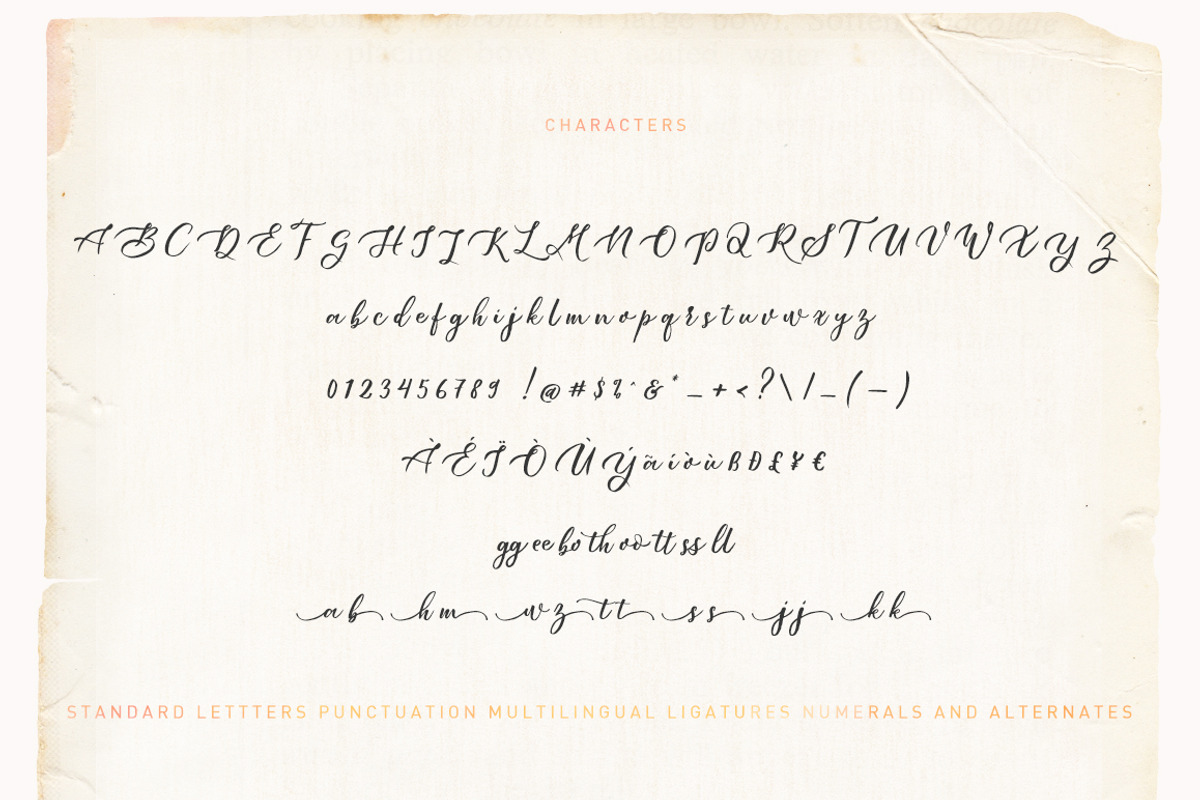 CHARACTERS
A B C D E F G H I J K L M N O P Q R S T U V W X Y Z
a b c d e f g h i j k l m n o p q r s t u v w x y z
0 1 2 3 4 5 6 7 8 9 ! @ # $ % ^ & * _ + < ? \ / _ ( – )
À É Ï Ò Ù Ý ã í ò ù ß Ð £ ¥ €
gg ee bo th oo tt ss ll
a b h m w z t t s s j j k k
STANDARD LETTTERS PUNCTUATION MULTILINGUAL LIGATURES NUMERALS AND ALTERNATES